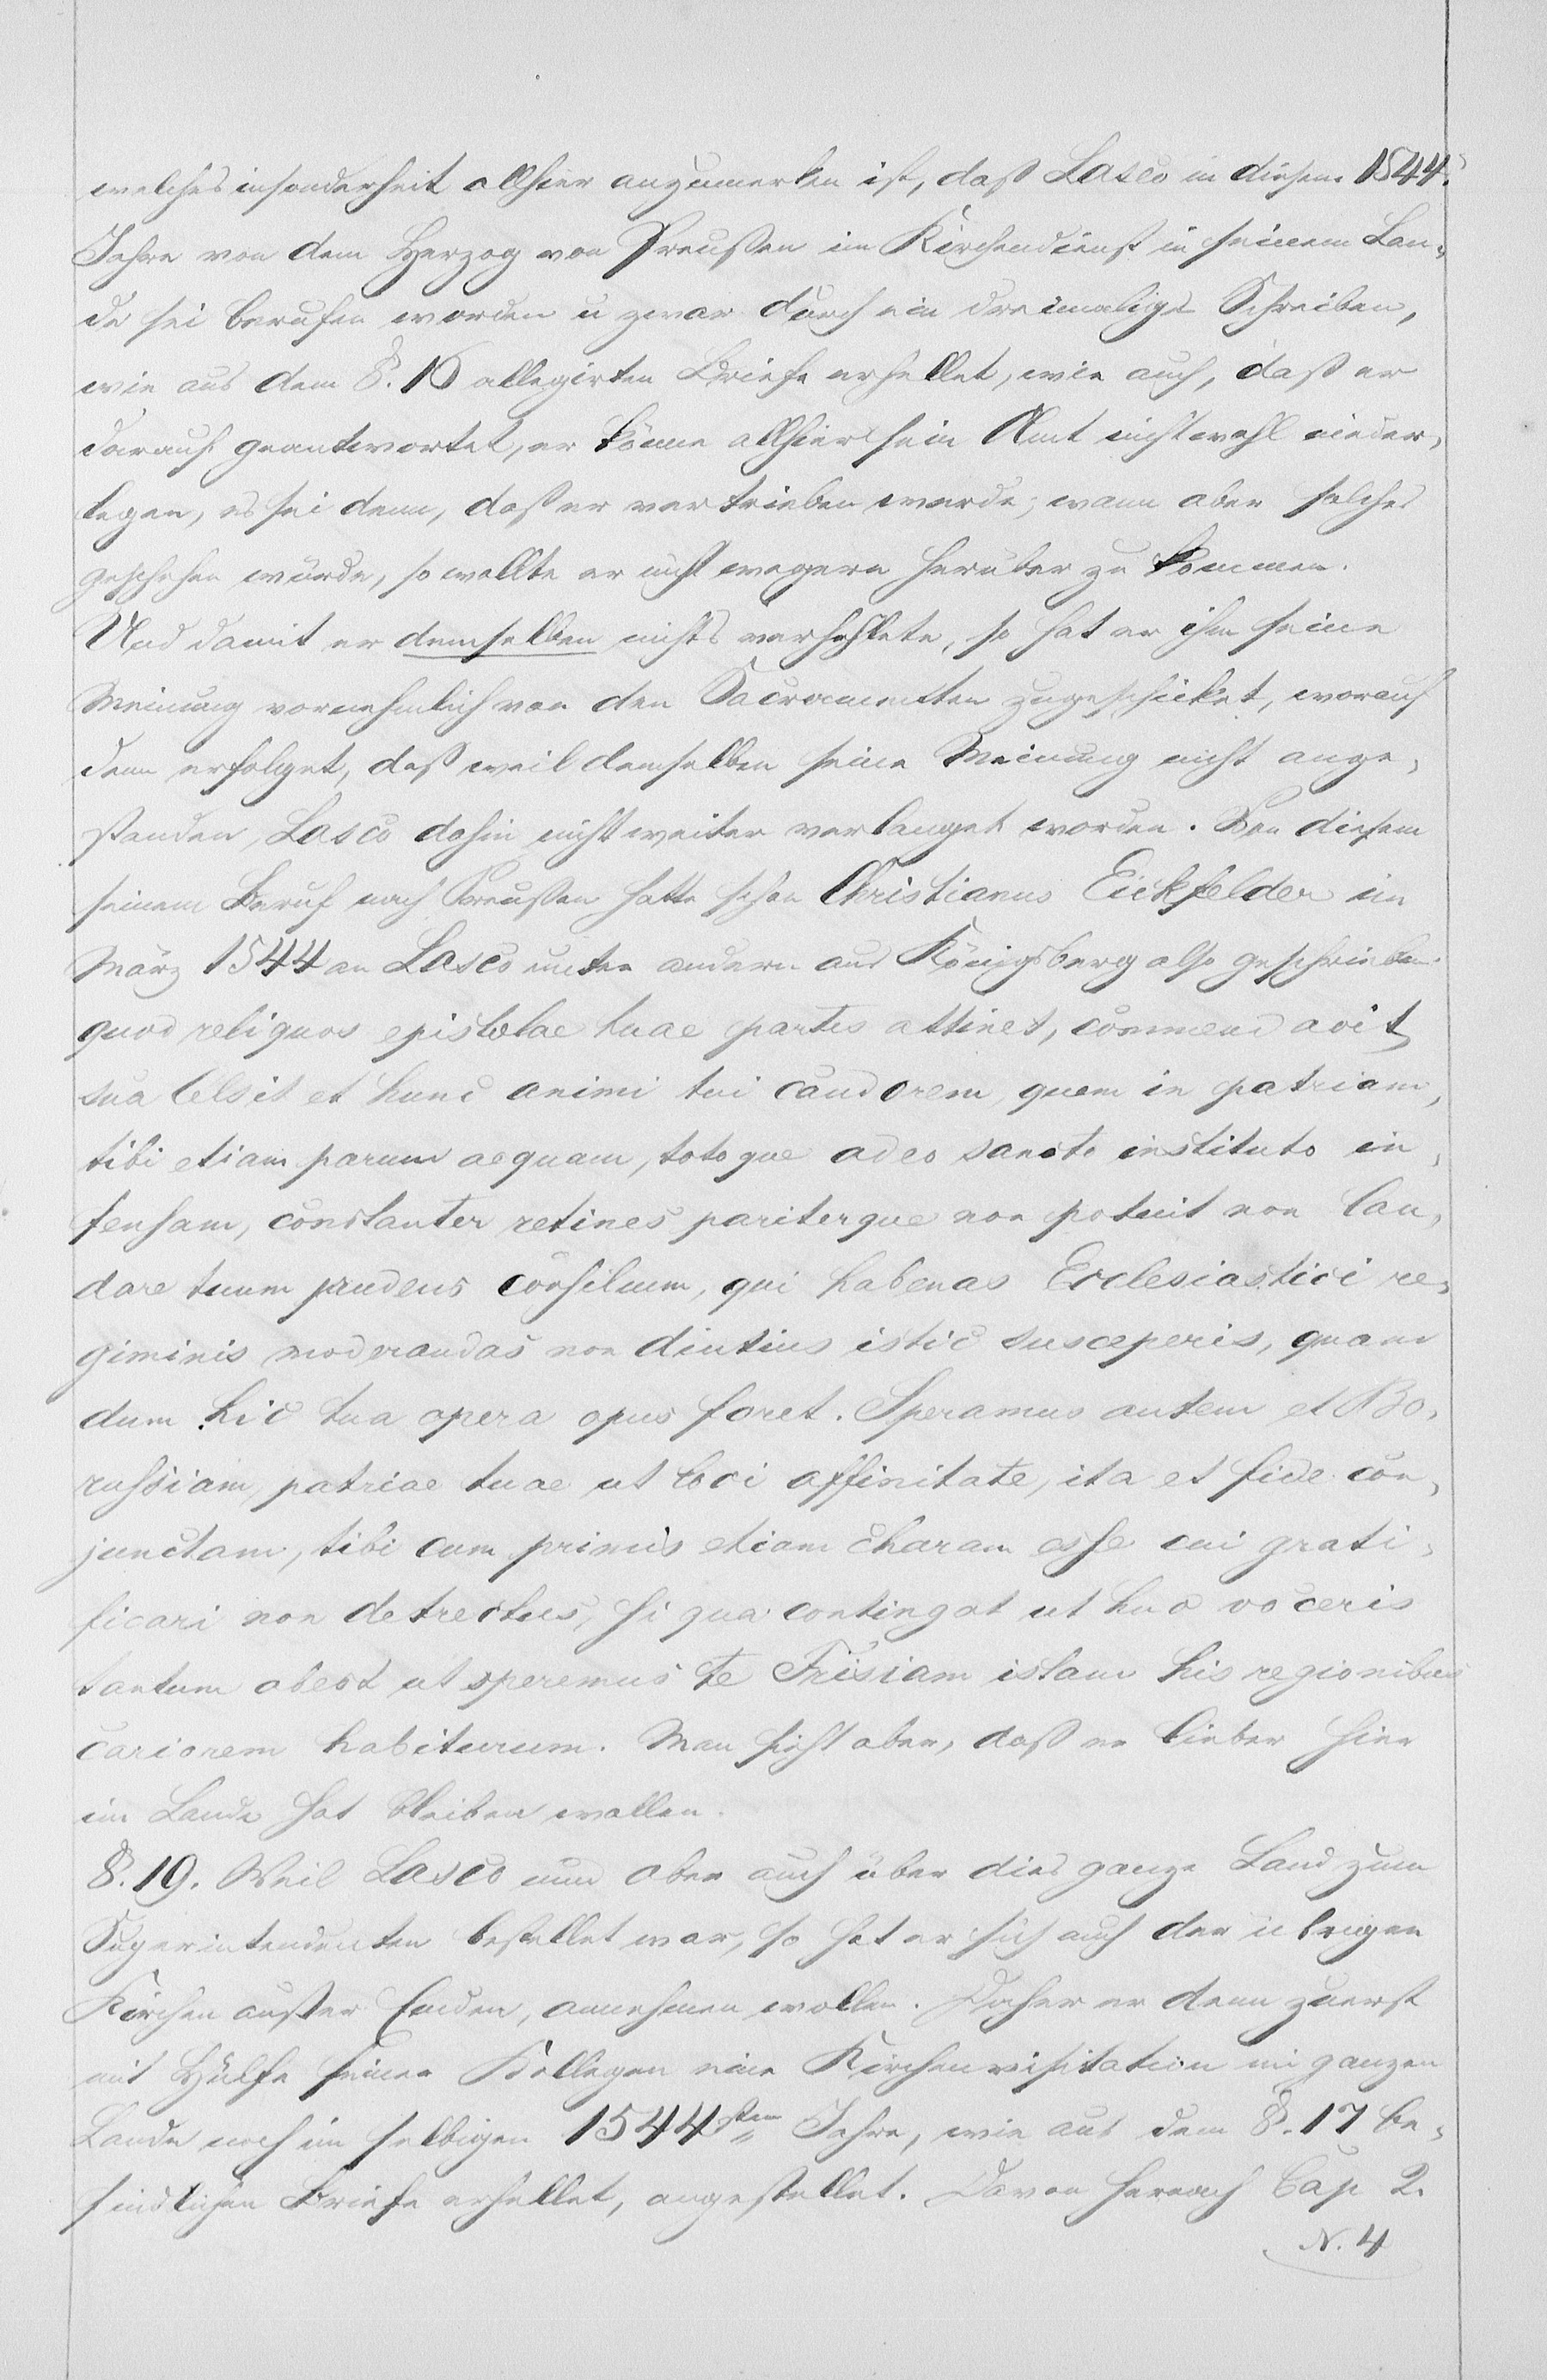 welches insonderheit allhier anzumerken ist, daß Lasco in diesem 1544.
Jahre von dem Herzog von Preußen im Kirchendienst in seinem Lan,
de sei berufen worden u zwar durch ein dreimaliges Schreiben,
wie aus dem §. 16 allegirten Briefe erhellet, wie auch, daß er
darauf geantwortet, er könne allhier sein Amt nicht wohl nieder,
legen, es sei denn, daß er vertrieben werde; wann aber solches
geschehen würde, so wollte er nicht wegern herüber zu kommen.
Und damit er demselben nichts verhehlete, so hat er ihm seine
Meinung vornehmlich von den Sacramenten zugeschicket, worauf
denn erfolget, daß weil demselben seine Meinung nicht ange,
standen, Lasco dahin nicht weiter verlanget worden. Von diesem
seinem Beruf nach Preußen hatte schon Christianus Eickfelder im
März 1544 an Lasco unter andern aus Königsberg also geschrieben
quod reliquos epistolae tuae partes attinet, commendavit
sua Celsit et hunc animi tui candorem, quem in patriam,
tibi etiam parum aequam, totoque adeo sancto instituto in,
fensam, constanter retines pariterque non potuit non lau,
dare tuum prudens consilium, qui habenas Ecclesiastici re,
giminis moderandas non diutius istic susceperis, quam
dum hic tua opera opus foret. Speramus autem et Bo,
russiam, patriae tuae ut loci affinitate, ita et fide con,
junctam, tibi cum primis etiam charam esse cui grati,
ficari non detrectes, si qua contingat ut huc voceris
tantum abest ut speremus te Frisiam istam his regionibus
cariorem habiturum. Man sieht aber, daß er lieber hier
im Lande hat bleiben wollen.
§. 19. Weil Lasco nun aber auch über dies ganze Land zum
Superintendenten bestellet war, so hat er sich auch der übrigen
Kirchen außer Emden, annehmen wollen. Daher er denn zuerst
mit Hülfe seiner Kollegen eine Kirchenvisitation im ganzen
Lande noch im selbigen 1544sten Jahre, wie aus dem §. 17 be,
findlichen Briefe erhellet, angestellet. Davon hernach Cap 2.
N. 4